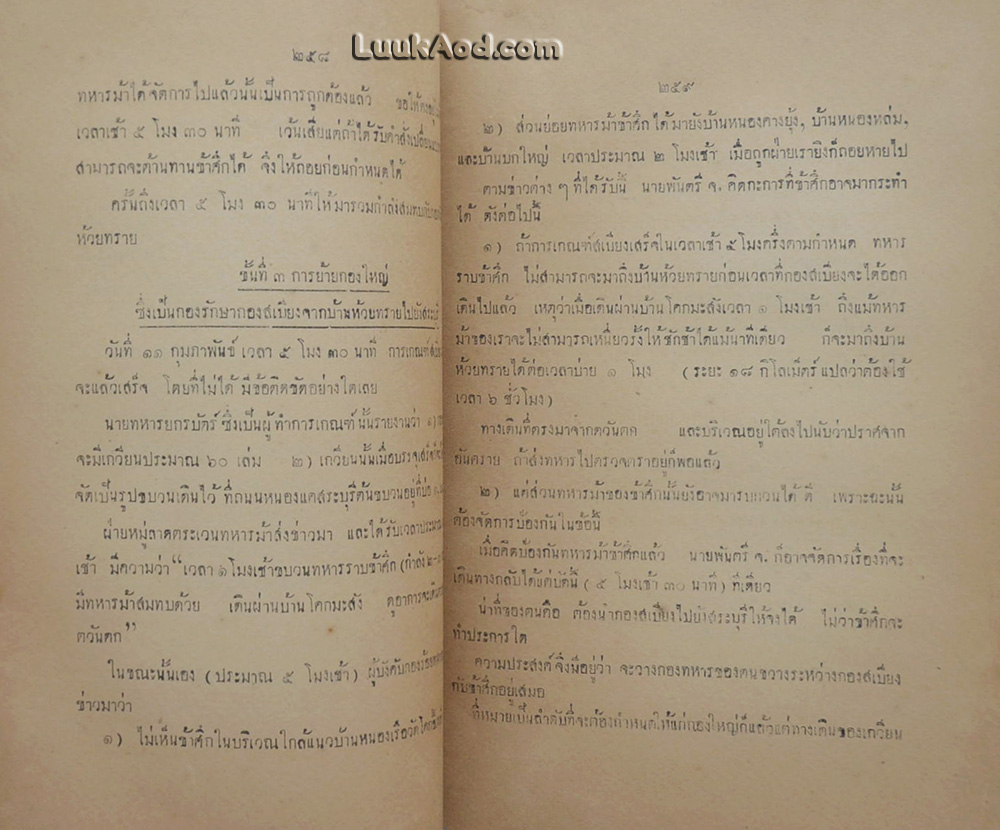 LuukAod.com
๒๕๘
ทหารม้าได้จัดการไปแล้วนั้นเป็นการถูกต้องแล้ว ขอให้
เวลาเช้า ๕ โมง ๓๐ นาที เว้นเสียแต่ถ้าได้รับคำสั่งเปลี่ยน
สามารถจะต้านทานข้าศึกได้ จึ่งให้ถอยก่อนกำหนดได้
ครั้นถึงเวลา ๕ โมง ๓๐ นาทีให้มารวมกำลังสมทบกับกอง
ห้วยทราย
ขั้นที่ ๓ การย้ายกองใหญ่
ซึ่งเป็นกองรักษากองสเบียงจากบ้านห้วยทรายไปยังสระบุรี
วันที่ ๑๑ กุมภาพันธ์ เวลา ๕ โมง ๓๐ นาที การเกณฑ์
จะแล้วเสร็จ โดยที่ไม่ได้มีข้อติดขัดอย่างใดเลย
นายทหารยกรบัตร์ซึ่งเป็นผู้ทำการเกณฑ์นั้นรายงานว่า ๑)
จะมีเกวียนประมาณ ๖๐ เล่ม ๒) เกวียนนั้นเมื่อบรรจุเสร็จ
จัดเป็นรูปขบวนเดินไว้ ที่ถนนหนองแคสระบุรีต้นขบวนอยู่ที่บ่อ
ฝ่ายหมู่ลาดตระเวนทหารม้าส่งข่าวมา และได้รับเวลาประมาณ
เช้า มีความว่า “เวลา ๑ โมงเช้าขบวนทหารราบข้าศึก (กำลัง
มีทหารม้าสมทบด้วย เดินผ่านบ้านโคกมะสัง ดูอาการจะเดิน
ตวันตก”
ในขณะนั้นเอง (ประมาณ ๕ โมงเช้า) ผู้บังคับกองร้อย
ข่าวมาว่า
๑) ไม่เห็นข้าศึกในบริเวณใกล้แนวบ้านหนองเรือวัดโคก
๒๕๙
๒) ส่วนย่อยทหารม้าข้าศึกได้มายังบ้านหนองคางยุ้ง, บ้านหนองหล่ม,
และบ้านบกใหญ่ เวลาประมาณ ๒ โมงเช้า เมื่อถูกฝ่ายเรายิงก็ถอยหายไป
ตามข่าวต่าง ๆ ที่ได้รับนี้ นายพันตรี จ. คิดกะการที่ข้าศึกอาจมากระทำ
ได้ ดังต่อไปนี้
๑) ถ้าการเกณฑ์สเบียงเสร็จในเวลาเช้า ๕ โมงครึ่งตามกำหนด ทหาร
ราบข้าศึก ไม่สามารถจะมาถึงบ้านห้วยทรายก่อนเวลาที่กองสเบียงจะได้ออก
เดินไปแล้ว เหตุว่าเมื่อเดินผ่านบ้านโคกมะสังเวลา ๑ โมงเช้า ถึงแม้ทหาร
ม้าของเราจะไม่สามารถเหนี่ยวรั้งให้ชักช้าได้แม้นาทีเดียว ก็จะมาถึงบ้าน
ห้วยทรายได้ต่อเวลาบ่าย ๑ โมง (ระยะ ๑๘ กิโลเม็ตร์ แปลว่าต้องใช้
เวลา ๖ ชั่วโมง)
ทางเดินที่ตรงมาจากตวันตก และบริเวณอยู่ใต้ลงไปนับว่าปราศจาก
อันตราย ถ้าส่งทหารไปตรวจตราอยู่ก็พอแล้ว
๒) แต่ส่วนทหารม้าของข้าศึกนั้นยังอาจมารบกวนได้ดี เพราะฉะนั้น
ต้องจัดการป้องกันในข้อนี้
เมื่อคิดป้องกันทหารม้าข้าศึกแล้ว นายพันตรี จ. ก็อาจจัดการเรื่องที่จะ
เดินทางกลับได้แต่บัดนี้ (๕ โมงเช้า ๓๐ นาที) ทีเดียว
น่าที่ของตนคือ ต้องนำกองสเบียงไปยังสระบุรีให้จงได้ ไม่ว่าข้าศึกจะ
ทำประการใด
ความประสงค์จึ่งมีอยู่ว่า จะวางกองทหารของตนขวางระหว่างกองสเบียง
กับข้าศึกอยู่เสมอ
ที่หมายเป็นลำดับที่จะต้องกำหนดให้แก่กองใหญ่ก็แล้วแต่ทางเดินของเกวียน